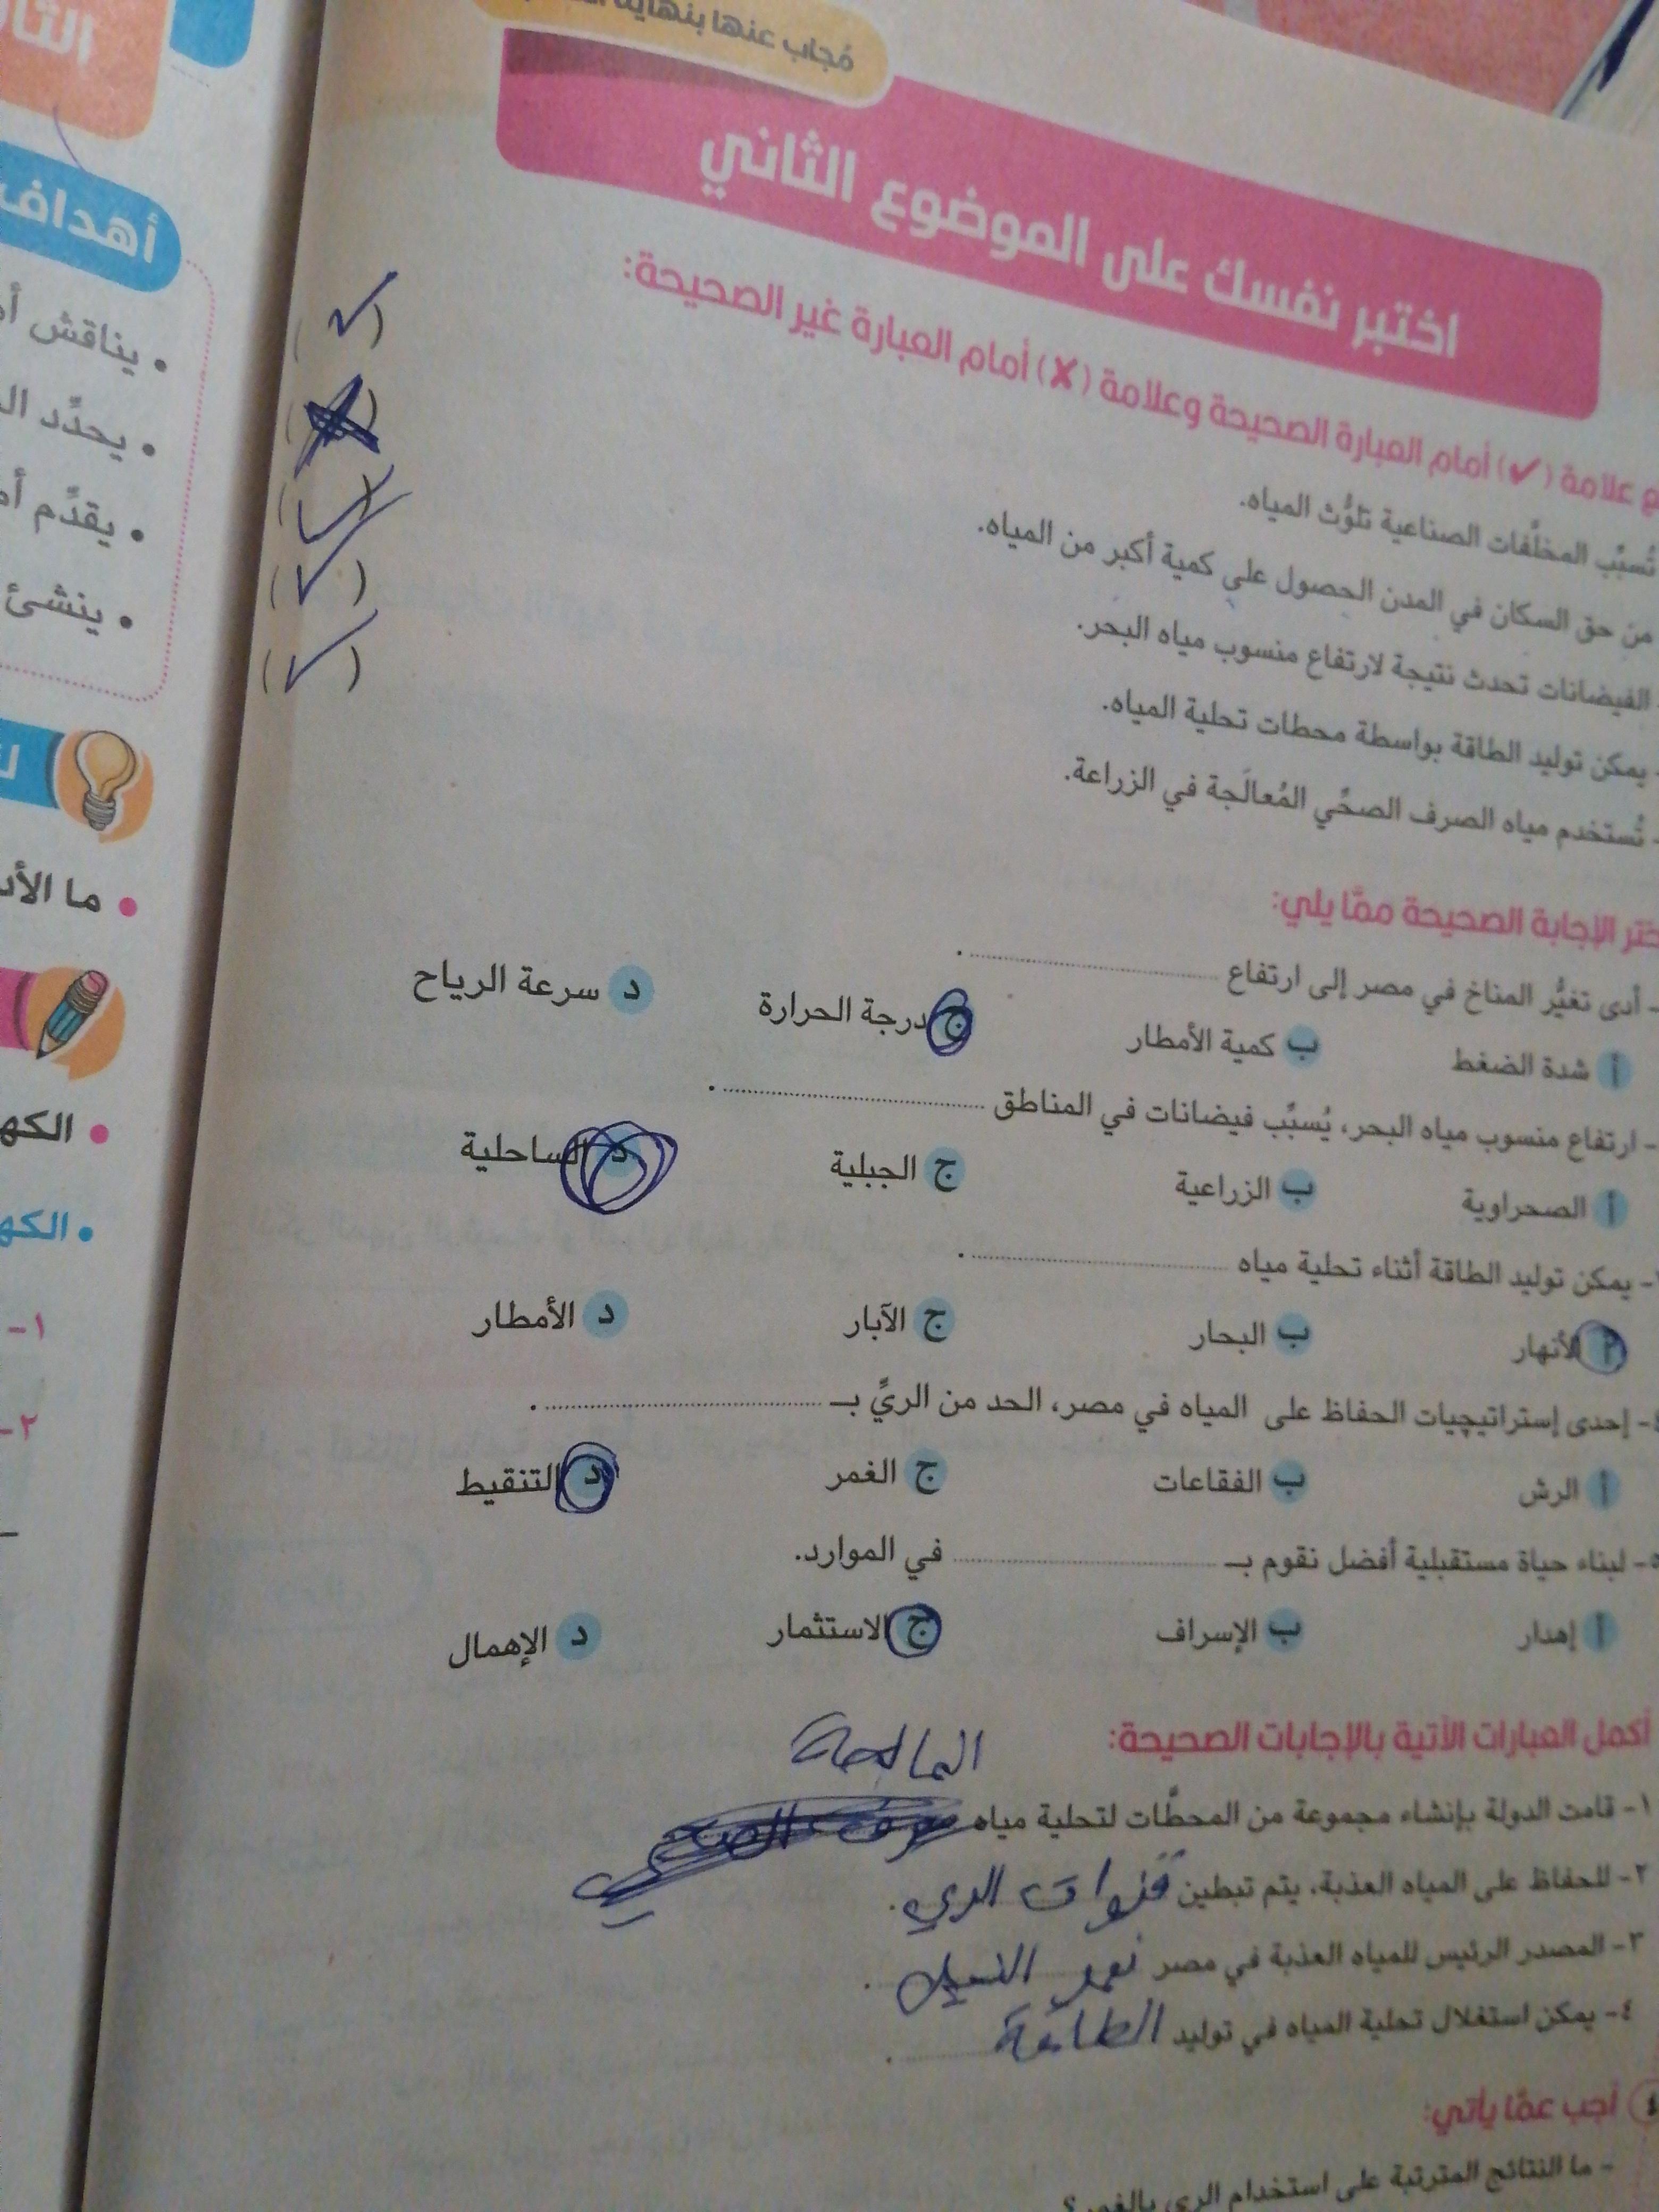 مُجاب عنها بنهاية
اختبر نفسك على الموضوع الثاني
علامة (✔) أمام العبارة الصحيحة وعلامة (✘) أمام العبارة غير الصحيحة:
تُسبِّب المخلَّفات الصناعية تلوُّث المياه. (✓)
من حق السكان في المدن الحصول على كمية أكبر من المياه. (✗)
- الفيضانات تحدث نتيجة لارتفاع منسوب مياه البحر. (✓)
- يمكن توليد الطاقة بواسطة محطات تحلية المياه. (✓)
- تُستخدم مياه الصرف الصحِّي المُعالَجة في الزراعة. (✓)
الإجابة الصحيحة ممَّا يلي:
- أدى تغيُّر المناخ في مصر إلى ارتفاع .
أ شدة الضغط ب كمية الأمطار ج درجة الحرارة د سرعة الرياح
- ارتفاع منسوب مياه البحر، يُسبِّب فيضانات في المناطق .
أ الصحراوية ب الزراعية ج الجبلية د الساحلية
- يمكن توليد الطاقة أثناء تحلية مياه .
أ الأنهار ب البحار ج الآبار د الأمطار
٤- إحدى إستراتيچيات الحفاظ على المياه في مصر، الحد من الريِّ بـ .
أ الرش ب الفقاعات ج الغمر د التنقيط
٥- لبناء حياة مستقبلية أفضل نقوم بـ في الموارد.
أ إهدار ب الإسراف ج الاستثمار د الإهمال
أكمل العبارات الآتية بالإجابات الصحيحة:
المالحة
١- قامت الدولة بإنشاء مجموعة من المحطَّات لتحلية مياه
٢- للحفاظ على المياه العذبة، يتم تبطين قنوات الري .
٣- المصدر الرئيس للمياه العذبة في مصر نهر النيل .
٤- يمكن استغلال تحلية المياه في توليد الطاقة .
٤ أجب عمَّا يأتي:
- ما النتائج المترتبة على استخدام الري بالغمر؟
أهداف
• يناقش
• يحدِّد
• يقدِّم
• ينشئ
• ما
١-
٢-